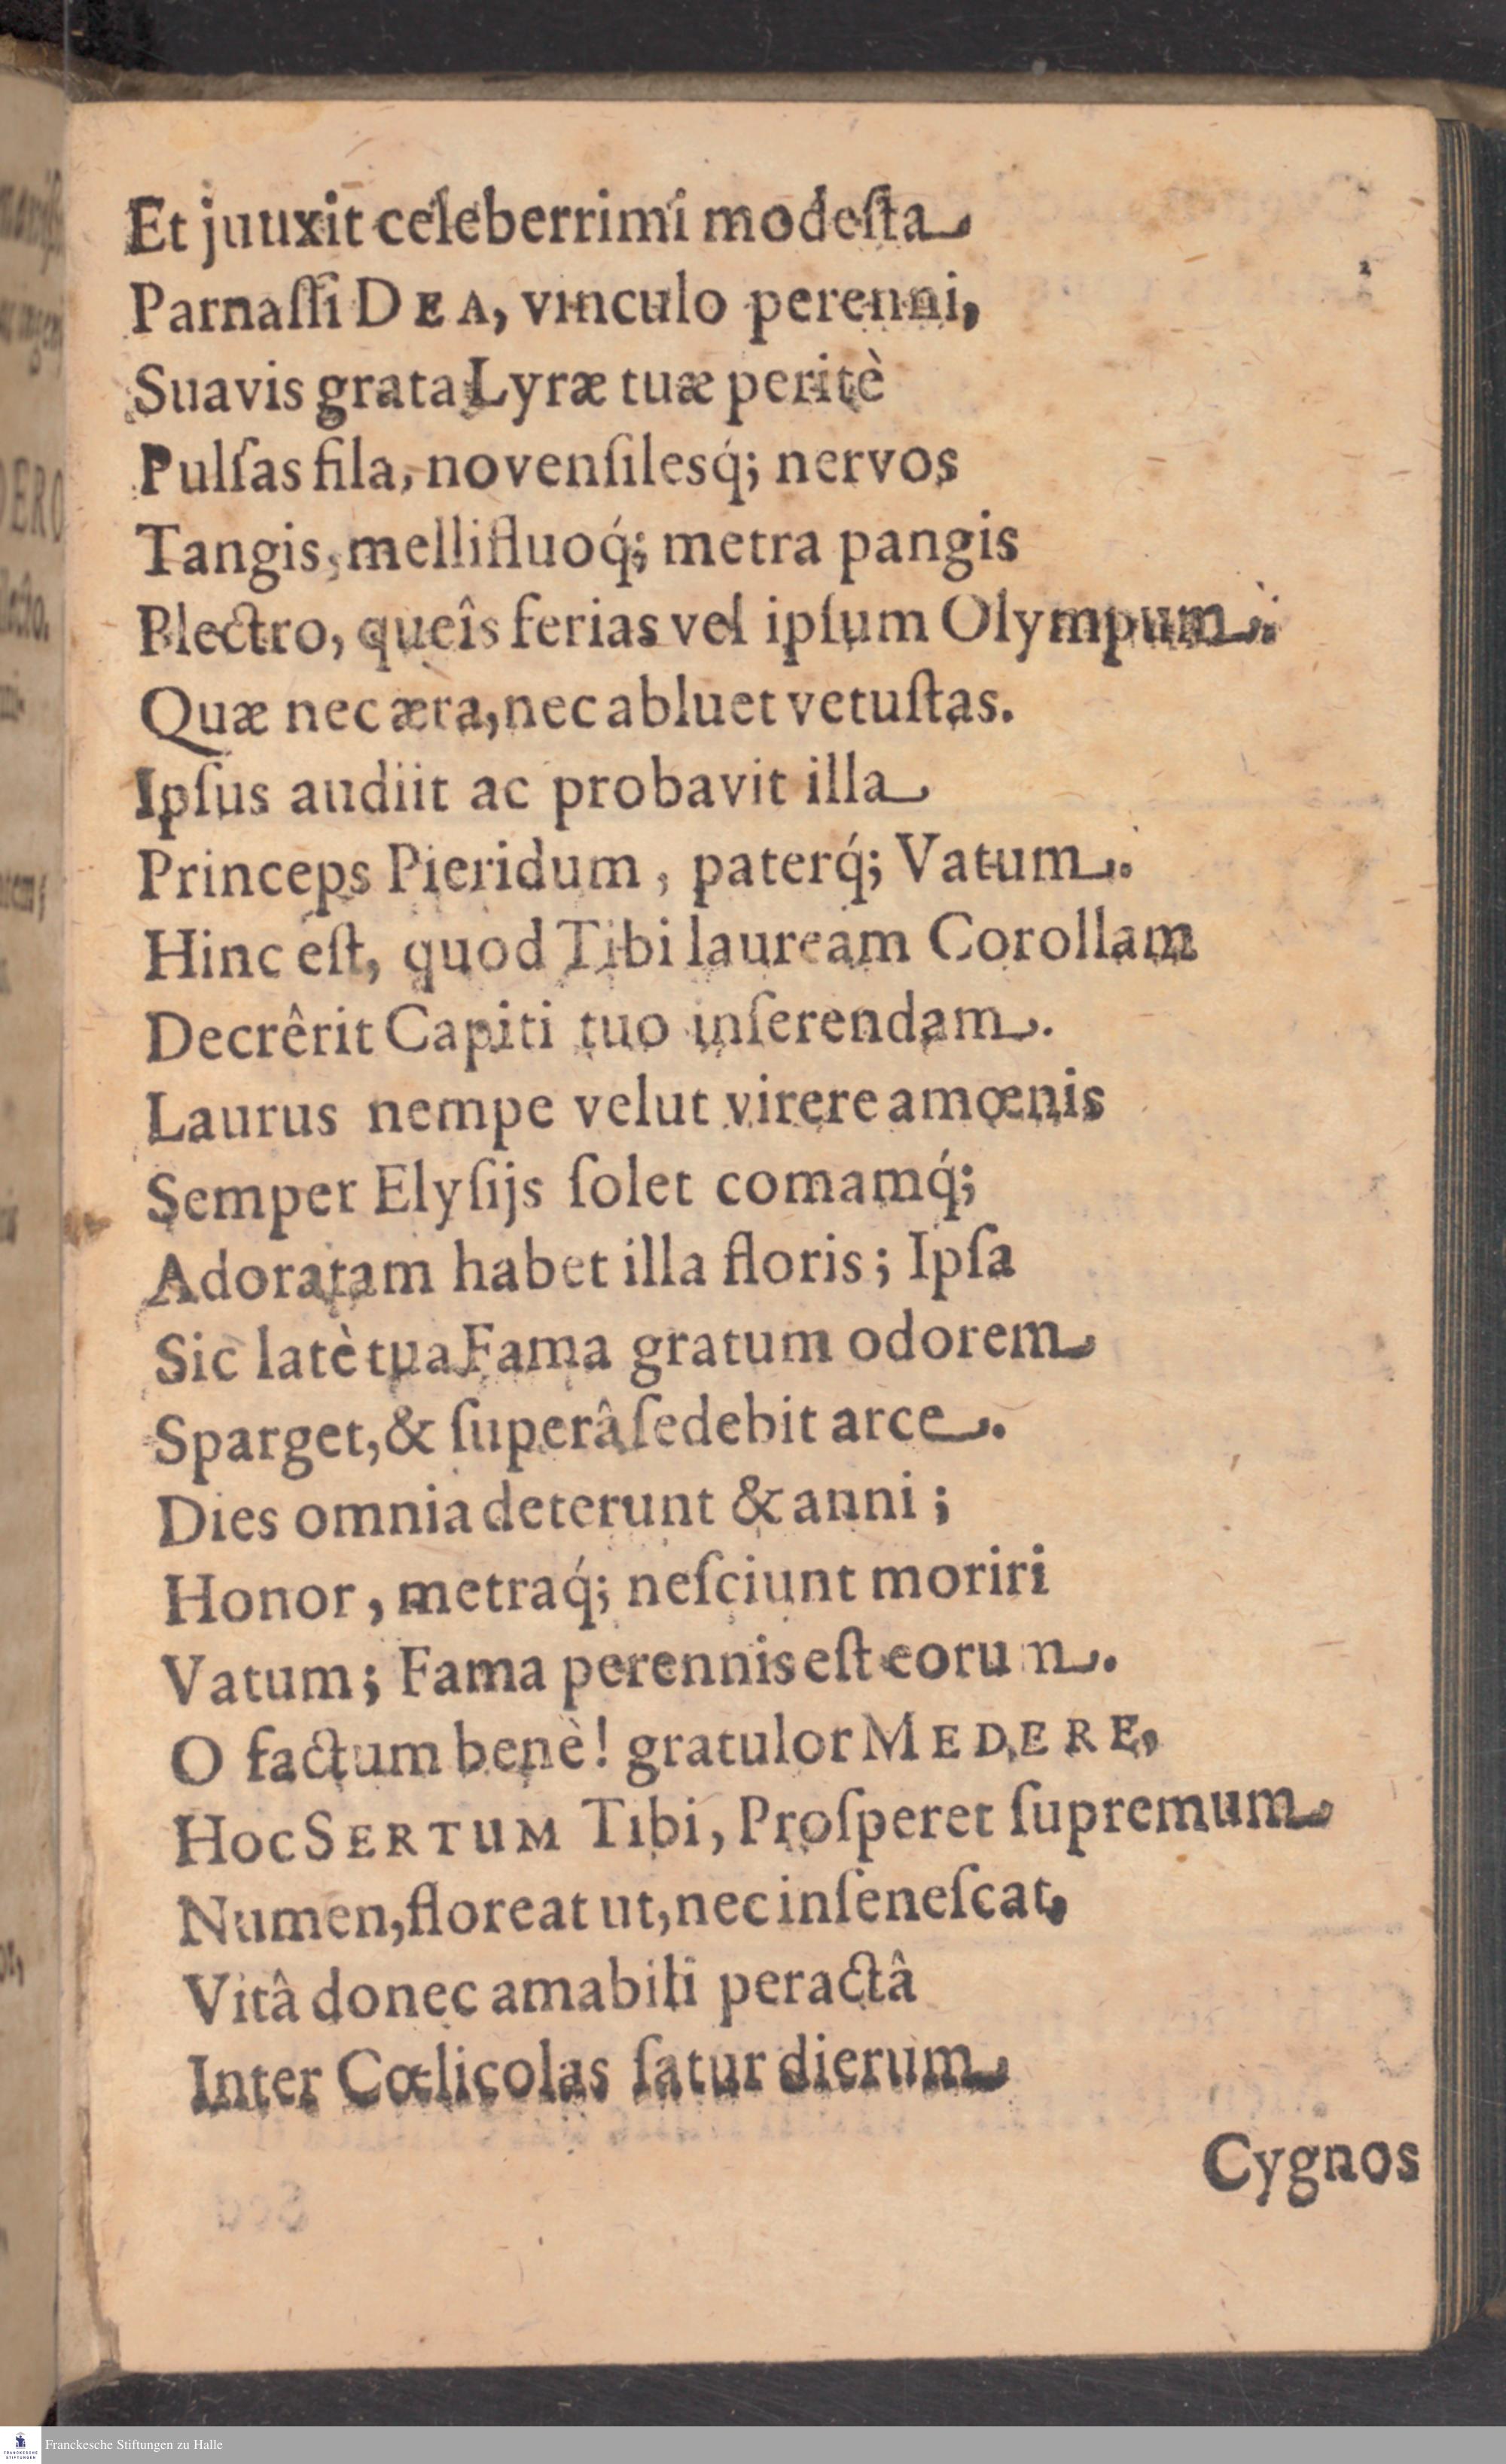 Et juuxit celeberrimi modeſta
Parnaſſi DEA, vinculo perenni,
Suavis grata Lyræ tuæ peritè
Pulſas fila, novenſilesq́; nervos
Tangis, mellifluoq́; metra pangis
Plectro, queîs ferias vel ipſum Olympum.
Quæ nec æra, nec abluet vetuſtas.
Ipſus audiit ac probavit illa
Princeps Pieridum, paterq́; Vatum.
Hinc eſt, quod Tibi lauream Corollam
Decrêrit Capiti tuo inſerendam.
Laurus nempe velut virere amœnis
Semper Elyſijs ſolet comamq́;
Adoratam habet illa floris; Ipſa
Sic latè tua Fama gratum odorem
Sparget, & ſuperâ ſedebit arce.
Dies omnia deterunt & anni;
Honor, metraq́; neſciunt moriri
Vatum; Fama perennis eſt eorum.
O factum benè! gratulor MEDERE,
Hoc SERTUM Tibi, Proſperet ſupremum
Numen, floreat ut, nec inſeneſcat,
Vitâ donec amabili peractâ
Inter Cœlicolas ſatur dierum
Cygnos
Franckesche Stiftungen zu Halle